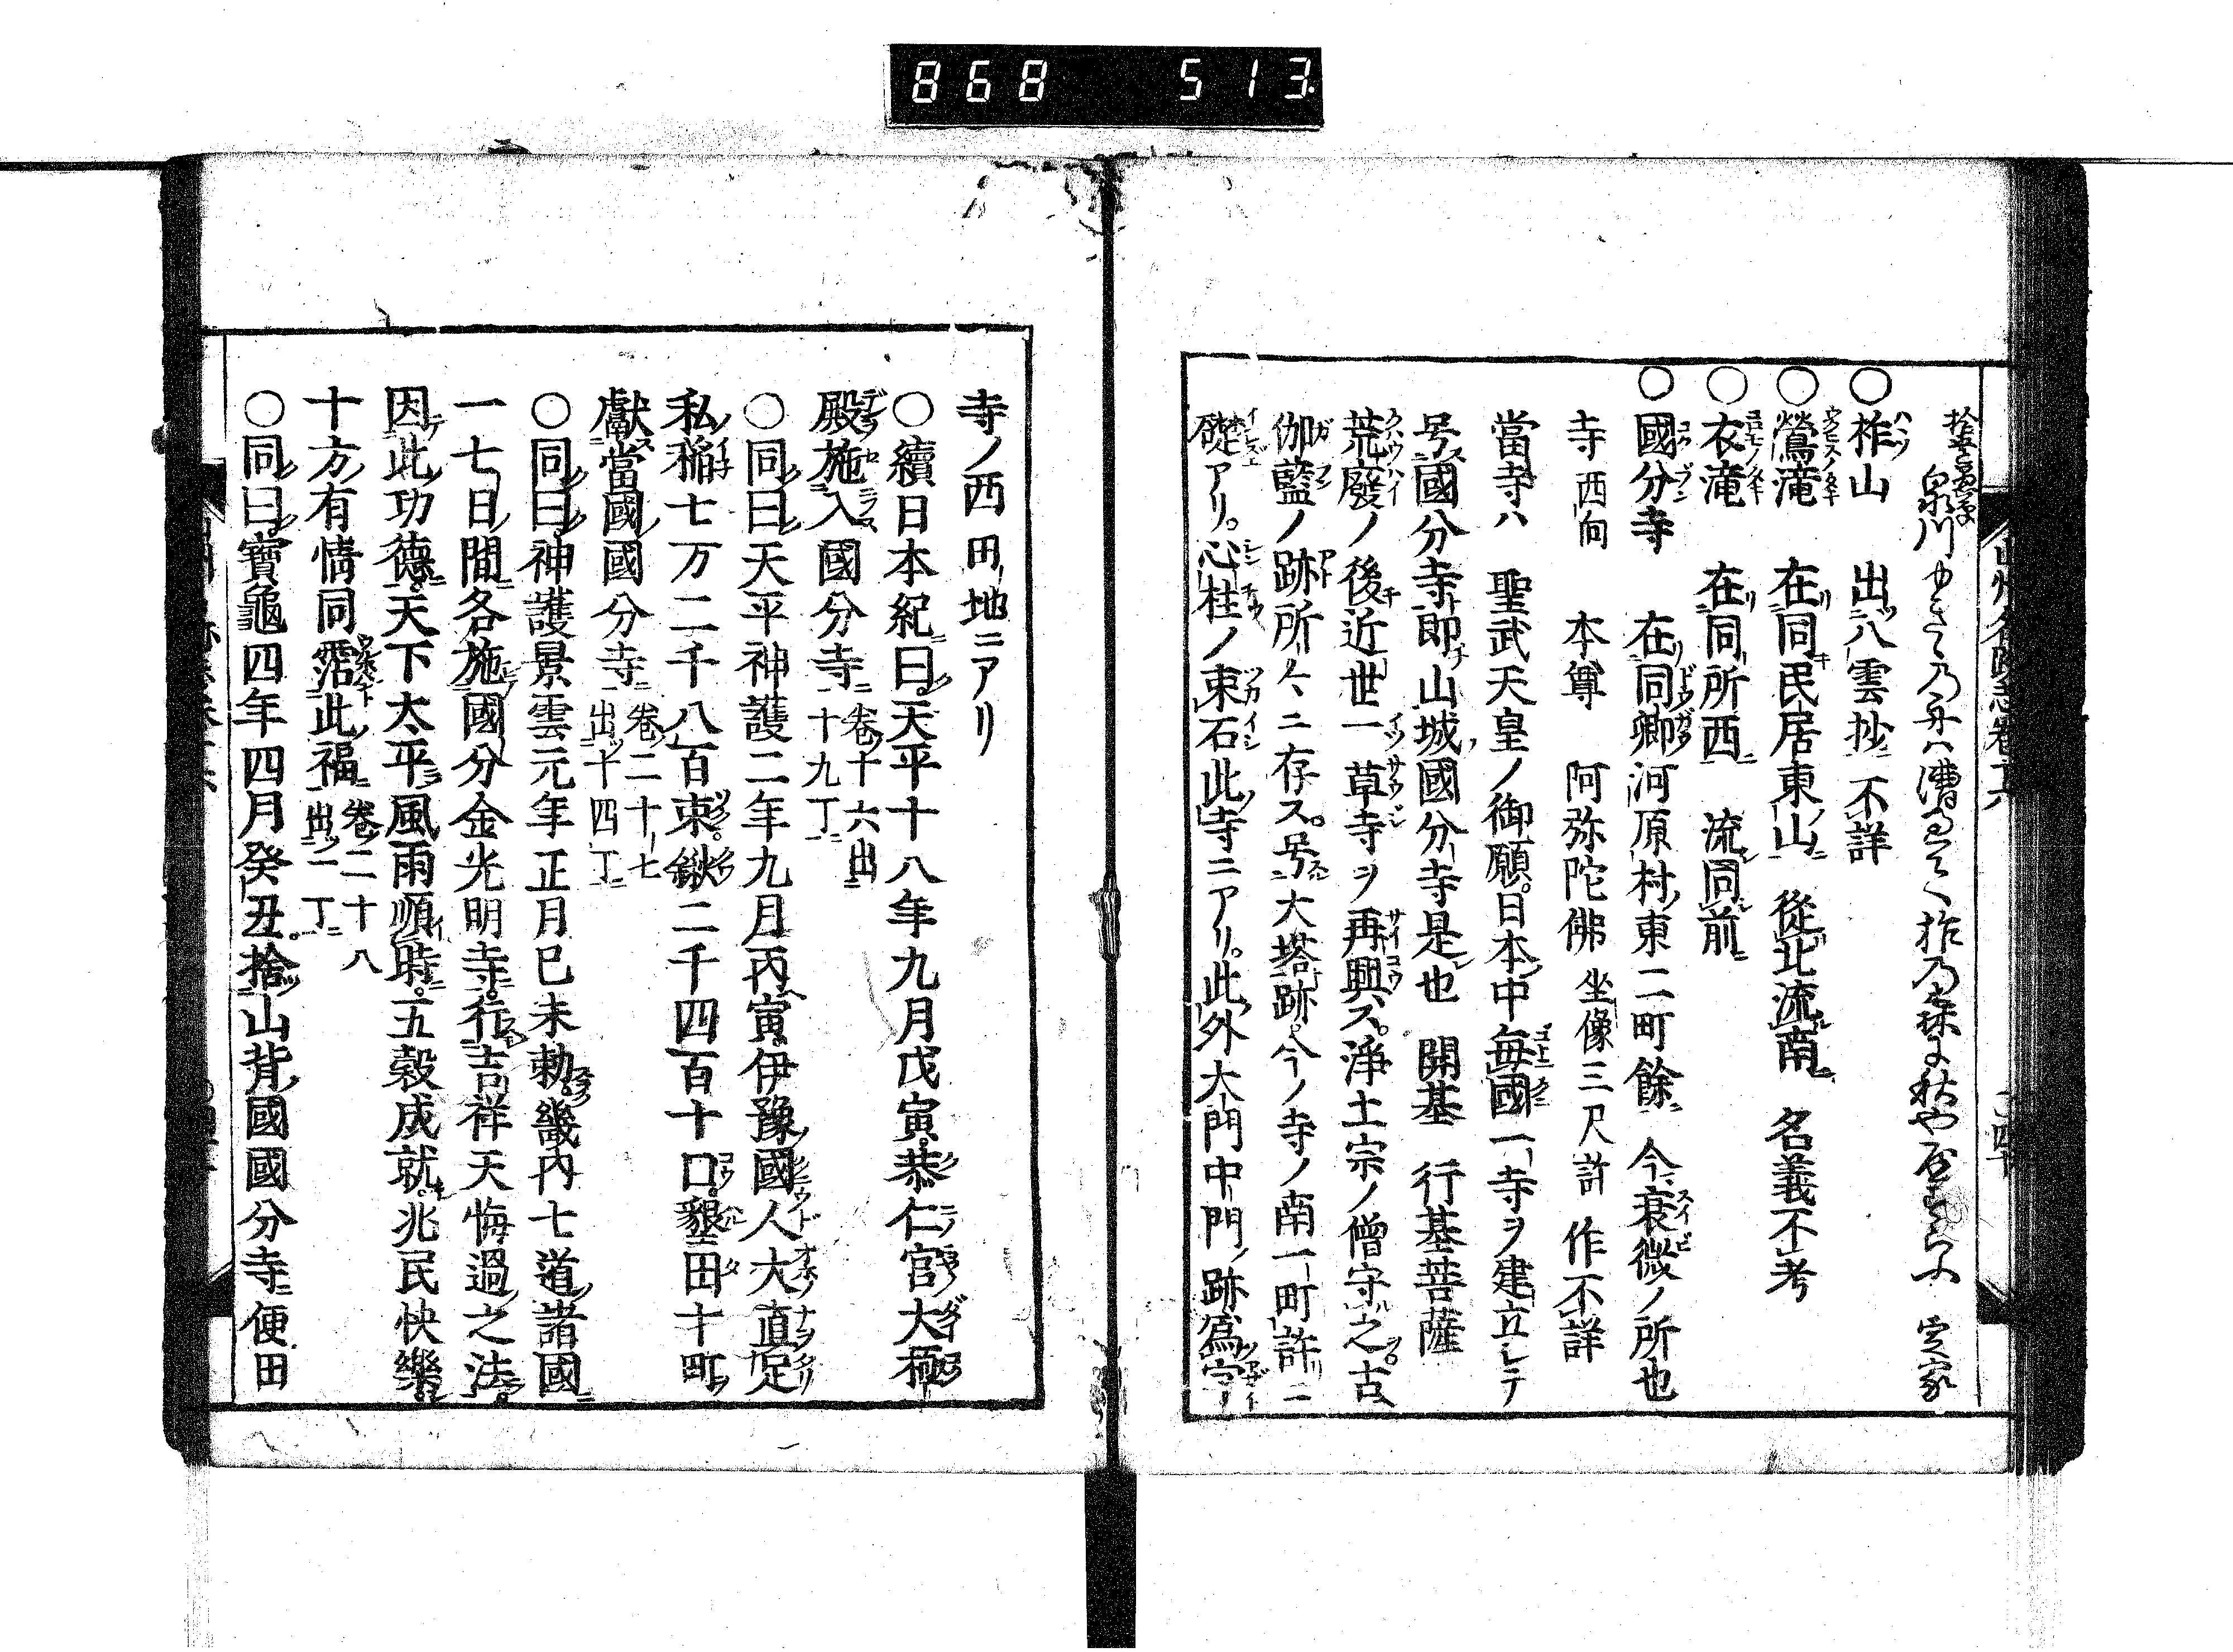 868 513
泉川
定家
○柞山 出八雲抄不詳
○鶯滝 在同民居東山 從北流南 名義不考
○衣滝 在同所西 流同前
○國分寺 在同郷河原村東二町餘 今衰微ノ所也
寺西向 本尊 阿弥陀佛 坐像三尺許 作不詳
當寺ハ 聖武天皇ノ御願。日本中毎國一寺ヲ建立シテ
号國分寺即山城國分寺是也 開基 行基菩薩
荒廢ノ後近世一草寺ヲ再興ス。浄土宗ノ僧守之。古
伽藍ノ跡所々ニ存ス。号大塔跡。今ノ寺ノ南一町許ニ
礎アリ。心柱ノ束石此寺ニアリ。此外大門中門ノ跡爲字
寺ノ西田地ニアリ
○續日本紀曰天平十八年九月戊寅恭仁宮大極
殿施入國分寺 卷十六出十九丁
○同曰天平神護二年九月丙寅伊豫國人大直足
私稲七万二千八百束。鍬二千四百十口。墾田十町
獻當國國分寺 卷二十七出十四丁
○同曰神護景雲元年正月已未勅。畿内七道諸國
一七日間各施國分金光明寺。行吉祥天悔過之法。
因此功德。天下太平風雨順時。五穀成就。兆民快樂。
十方有情同霑此福 卷二十八出一丁
○同曰寶龜四年四月癸丑。捨山背國國分寺便田